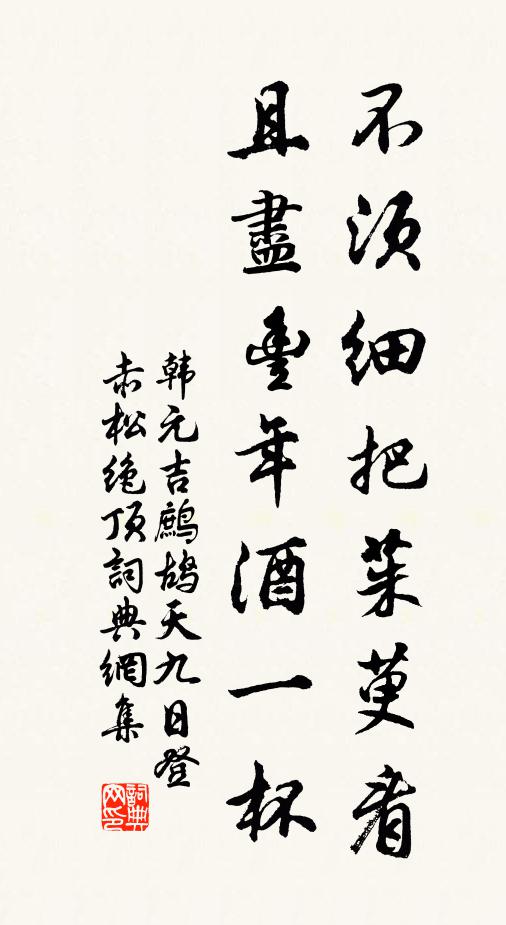 不須細把茱萸看
且盡豐年酒一杯
韩元吉鹧鸪天九日登
赤松绝頂詞典網集
詞典网印